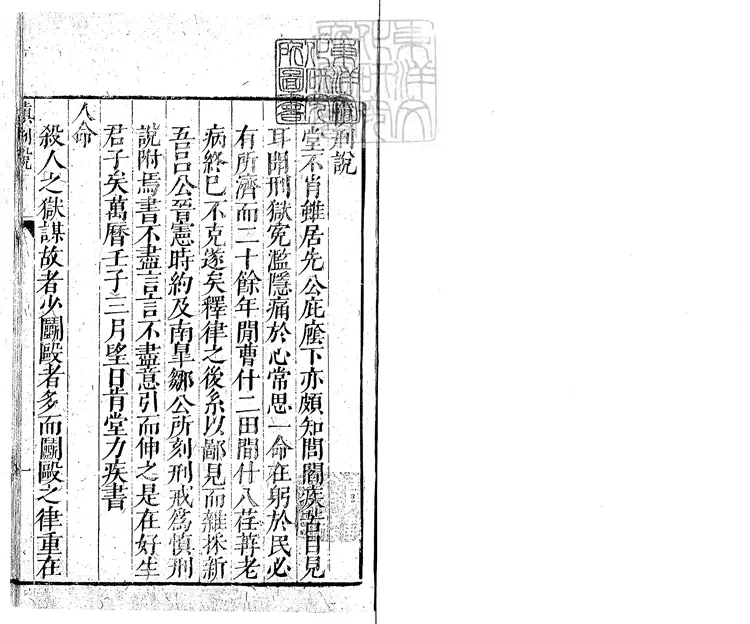 慎刑說
堂不肖雖居先公庇廕下亦頗知閭閻疾苦目見
耳聞刑獄冤濫隱痛於心常思一命在躬於民必
有所濟而二十餘年閒曹什二田間什八荏苒老
病終已不克遂矣釋律之後系以鄙見而雜採新
吾呂公晉憲時約及南皐鄒公所刻刑戒為慎刑
說附焉書不盡言言不盡意引而伸之是在好生
君子矣萬曆壬子三月望日肯堂力疾書
人命
殺人之獄謀故者少鬭毆者多而鬭毆之律重在
慎刑說
一
東洋文化研究所圖書
東洋文化研究所